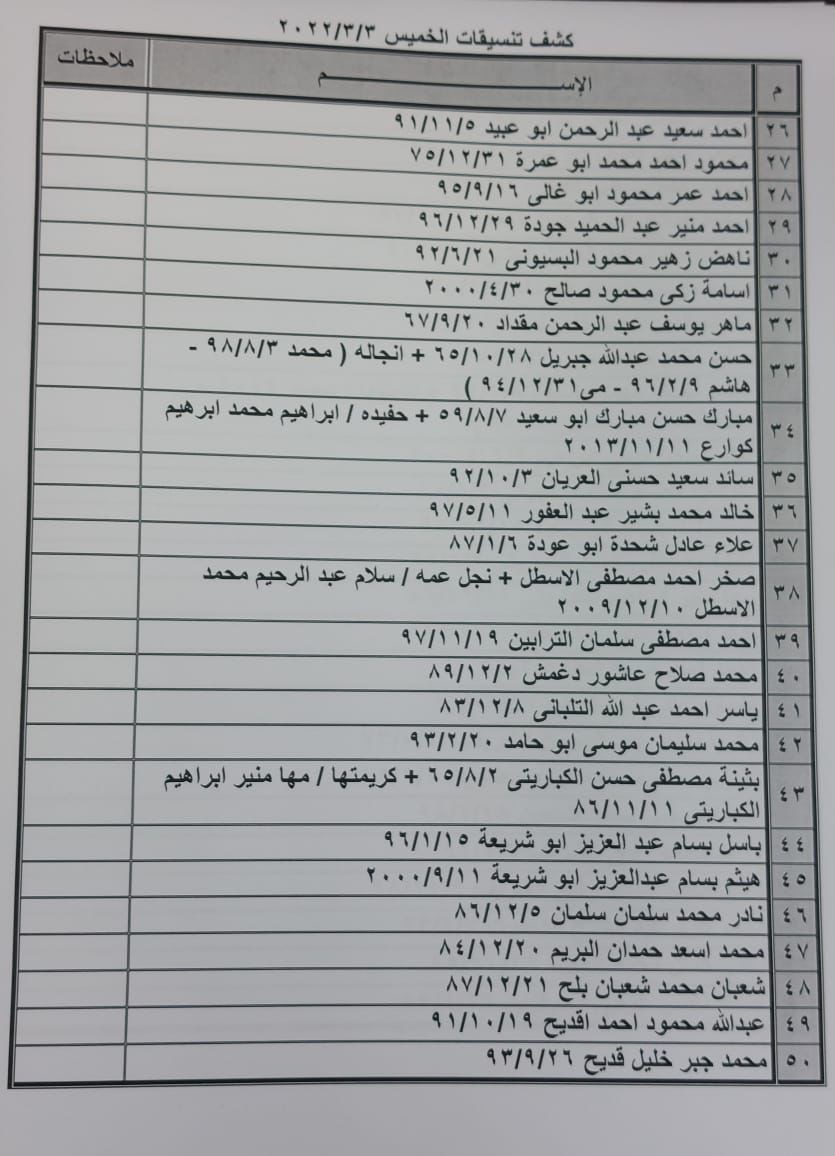 كشف تنسيقات الخميس ٢٠٢٢/٣/٣
م الإســـــــم ملاحظات
٢٦ احمد سعيد عبد الرحمن ابو عبيد ٩١/١١/٥
٢٧ محمود احمد محمد ابو عمرة ٧٥/١٢/٣١
٢٨ احمد عمر محمود ابو غالى ٩٥/٩/١٦
٢٩ احمد منير عبد الحميد جودة ٩٦/١٢/٢٩
٣٠ ناهض زهير محمود البسيونى ٩٢/٦/٢١
٣١ اسامة زكى محمود صالح ٢٠٠٠/٤/٣٠
٣٢ ماهر يوسف عبد الرحمن مقداد ٦٧/٩/٢٠
٣٣ حسن محمد عبدالله جبريل ٦٥/١٠/٢٨ + انجاله ( محمد ٩٨/٨/٣ -
هاشم ٩٦/٢/٩ - مى٩٤/١٢/٣١ )
٣٤ مبارك حسن مبارك ابو سعيد ٥٩/٨/٧ + حفيده / ابراهيم محمد ابرهيم
كوارع ٢٠١٣/١١/١١
٣٥ سائد سعيد حسنى العريان ٩٢/١٠/٣
٣٦ خالد محمد بشير عبد العفور ٩٧/٥/١١
٣٧ علاء عادل شحدة ابو عودة ٨٧/١/٦
٣٨ صخر احمد مصطفى الاسطل + نجل عمه / سلام عبد الرحيم محمد
الاسطل ٢٠٠٩/١٢/١٠
٣٩ احمد مصطفى سلمان الترابين ٩٧/١١/١٩
٤٠ محمد صلاح عاشور دغمش ٨٩/١٢/٢
٤١ ياسر احمد عبد الله التلبانى ٨٣/١٢/٨
٤٢ محمد سليمان موسى ابو حامد ٩٣/٢/٢٠
٤٣ بثينة مصطفى حسن الكباريتى ٦٥/٨/٢ + كريمتها / مها منير ابراهيم
الكباريتى ٨٦/١١/١١
٤٤ باسل بسام عبد العزيز ابو شريعة ٩٦/١/١٥
٤٥ هيثم بسام عبدالعزيز ابو شريعة ٢٠٠٠/٩/١١
٤٦ نادر محمد سلمان سلمان ٨٦/١٢/٥
٤٧ محمد اسعد حمدان البريم ٨٤/١٢/٢٠
٤٨ شعبان محمد شعبان بلح ٨٧/١٢/٢١
٤٩ عبدالله محمود احمد اقديح ٩١/١٠/١٩
٥٠ محمد جبر خليل قديح ٩٣/٩/٢٦